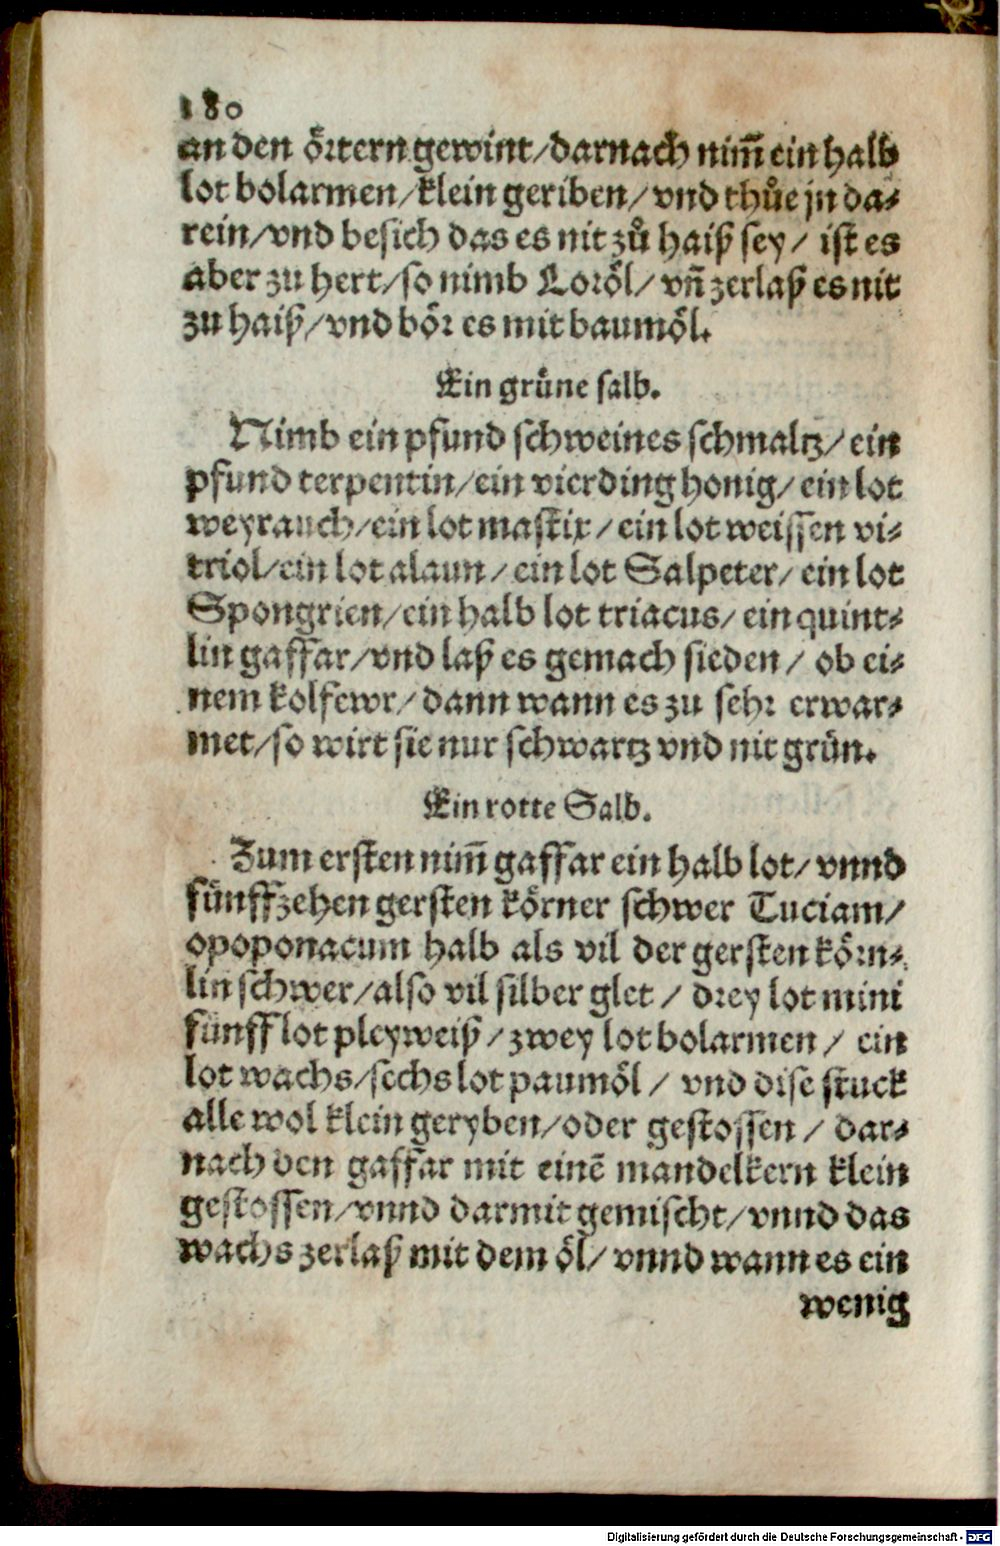 180
an den oͤrtern gewint/darnach nim̄ ein halb
lot bolarmen/klein geriben/vnd thuͦe jn da⸗
rein/vnd besich das es nit zuͦ haiß sey/ ist es
aber zu hert/so nimb Loroͤl/ vn̄ zerlaß es nit
zu haiß/vnd boͤr es mit baumoͤl.
Ein gruͤne salb.
Nimb ein pfund schweines schmaltz/ein
pfund terpentin/ein vierding honig/ein lot
weyrauch/ein lot mastix/ein lot weissen vi⸗
triol/ein lot alaun/ein lot Salpeter/ein lot
Spongrien/ein halb lot triacus/ein quint⸗
lin gaffar/vnd laß es gemach sieden/ ob ei⸗
nem kolfewr/dann wann es zu sehr erwar⸗
met/so wirt sie nur schwartz vnd nit gruͤn.
Ein rotte Salb.
Zum ersten nim̄ gaffar ein halb lot/vnnd
fuͤnffzehen gersten koͤrner schwer Tuciam/
opoponacum halb als vil der gersten koͤrn⸗
lin schwer/also vil silber glet/ drey lot mini
fuͤnff lot pleyweiß/zwey lot bolarmen/ ein
lot wachs/sechs lot paumoͤl/ vnd dise stuck
alle wol klein geryben/oder gestossen/ dar⸗
nach den gaffar mit einē mandelkern klein
gestossen/vnnd darmit gemischt/vnnd das
wachs zerlaß mit dem oͤl/vnnd wann es ein
wenig
Digitalisierung gefördert durch die Deutsche Forschungsgemeinschaft - DFG